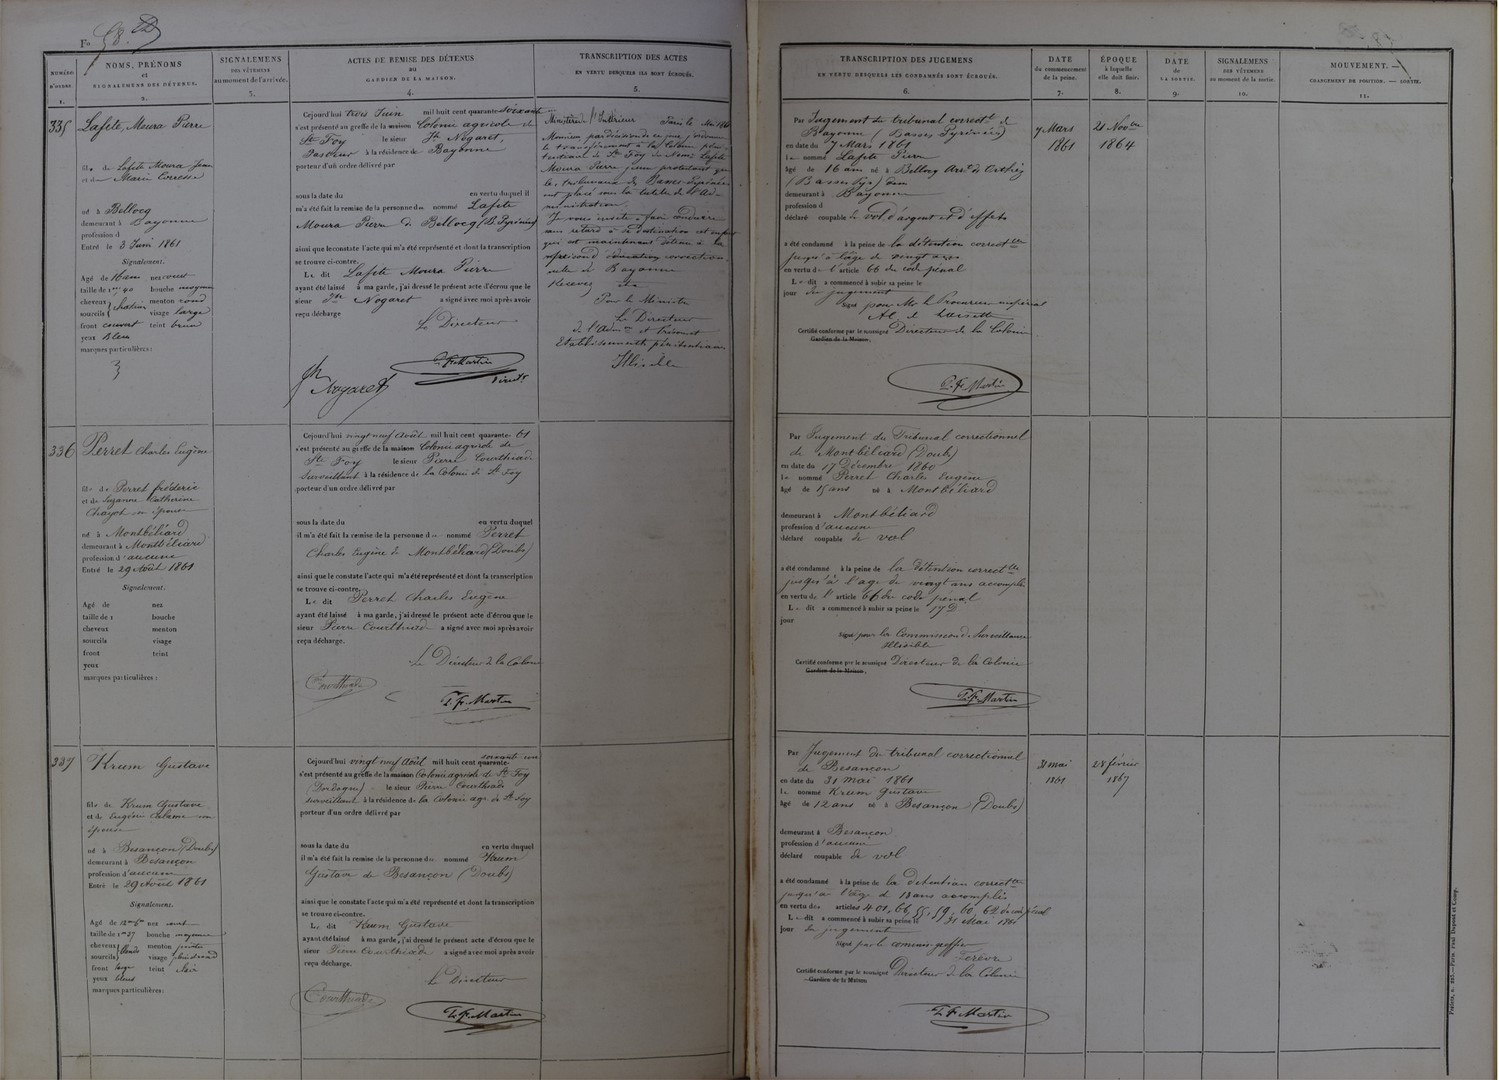 Fo 58
NUMÉRO
D'ORDRE
1.
NOMS, PRÉNOMS
et
SIGNALEMENS DES DÉTENUS.
2.
SIGNALEMENS
DES VÊTEMENS
au moment de l'arrivée.
3.
ACTES DE REMISE DES DÉTENUS
au
GARDIEN DE LA MAISON.
4.
TRANSCRIPTION DES ACTES
EN VERTU DESQUELS ILS SONT ÉCROUÉS.
5.
335
Lafite, Moura Pierre
fils de Lafite Moura Jean
et de Marie
né à Bellocq
demeurant à Bayonne
profession d
Entré le 3 Juin 1861
Signalement.
Agé de 16 ans nez court
taille de 1m 40 bouche moyenne
cheveux menton rond
sourcils } chatain visage large
front couvert teint brun
yeux bleus
marques particulières :
Cejourd'hui trois Juin mil huit cent quarante-soixante
s'est présenté au greffe de la maison Colonie agricole de
Ste Foy le sieur Nogaret,
Pasteur à la résidence de Bayonne
porteur d'un ordre délivré par
sous la date du en vertu duquel il
m'a été fait la remise de la personne du nommé Lafite
Moura Pierre de Bellocq (B. Pyrénées)
ainsi que le constate l'acte qui m'a été représenté et dont la transcription
se trouve ci-contre.
Le dit Lafite Moura Pierre
ayant été laissé à ma garde, j'ai dressé le présent acte d'écrou que le
sieur Nogaret a signé avec moi après avoir
reçu décharge
Le Directeur
Nogaret
P. Fr. Martin
Direct.
Ministère de l'Intérieur Paris le Mai 1861
Monsieur par décision de ce jour j'ordonne
le transfèrement à la Colonie
de Ste Foy du nommé Lafite
Moura Pierre jeune protestant que
les tribunaux des Basses-Pyrénées
ont placé sous la tutelle de l'Ad-
ministration.
Je vous invite à faire conduire
sans retard à sa destination cet enfant
qui est maintenant détenu à la
de Bayonne
Recevez
Pour le Ministre
Le Directeur
de l'Adm. et
Etablissements pénitentiaires
Illisible
336
Perret Charles Eugène
fils de Perret fréderic
et de Suzanne Catherine
Chayot son épouse
né à Montbéliard
demeurant à Montbéliard
profession d'aucune
Entré le 29 Août 1861
Signalement.
Agé de nez
taille de 1 bouche
cheveux menton
sourcils visage
front teint
yeux
marques particulières :
Cejourd'hui vingt neuf Août mil huit cent quarante-61
s'est présenté au greffe de la maison Colonie agricole de
Ste Foy le sieur Pierre Courthiade
surveillant à la résidence de la Colonie de Ste Foy
porteur d'un ordre délivré par
sous la date du en vertu duquel
il m'a été fait la remise de la personne du nommé Perret
Charles Eugène de Montbéliard (Doubs)
ainsi que le constate l'acte qui m'a été représenté et dont la transcription
se trouve ci-contre.
Le dit Perret Charles Eugène
ayant été laissé à ma garde, j'ai dressé le présent acte d'écrou que le
sieur Pierre Courthiade a signé avec moi après avoir
reçu décharge.
Le Directeur de la Colonie
Courthiade
P. Fr. Martin
337
Krum Gustave
fils de Krum Gustave
et de Eugénie son
épouse
né à Besançon (Doubs)
demeurant à Besançon
profession d'aucune
Entré le 29 Août 1861
Signalement.
Agé de 12 ans 6 m nez
taille de 1m 37 bouche moyenne
cheveux menton pointu
sourcils } blonds visage plein rond
front large teint clair
yeux bleus
marques particulières :
Cejourd'hui vingt neuf Août mil huit cent quarante- soixante un
s'est présenté au greffe de la maison Colonie agricole de Ste Foy
(Dordogne) le sieur Pierre Courthiade
surveillant à la résidence de la Colonie agr. de Ste Foy
porteur d'un ordre délivré par
sous la date du en vertu duquel
il m'a été fait la remise de la personne du nommé Krum
Gustave de Besançon (Doubs)
ainsi que le constate l'acte qui m'a été représenté et dont la transcription
se trouve ci-contre.
Le dit Krum Gustave
ayant été laissé à ma garde, j'ai dressé le présent acte d'écrou que le
sieur Pierre Courthiade a signé avec moi après avoir
reçu décharge.
Le Directeur
Courthiade
P. Fr. Martin
TRANSCRIPTION DES JUGEMENS
EN VERTU DESQUELS LES CONDAMNÉS SONT ÉCROUÉS.
6.
DATE
du commencement
de la peine.
7.
ÉPOQUE
à laquelle
elle doit finir.
8.
DATE
de
LA SORTIE.
9.
SIGNALEMENS
DES VÊTEMENS
au moment de la sortie.
10.
MOUVEMENT.
CHANGEMENT DE POSITION. — SORTIE.
11.
Par Jugement du tribunal correct. de
Bayonne (Basses Pyrénées)
en date du 7 Mars 1861
le nommé Lafite Pierre
âgé de 16 ans né à Bellocq Arrt d'Orthez
(Basses Pyr)
demeurant à Bayonne
profession d
déclaré coupable de vol d'argent et d'effets
a été condamné à la peine de la détention correctlle
jusqu'à l'âge de vingt ans
en vertu de l'article 66 du code pénal
Le dit a commencé à subir sa peine le
jour du jugement
Signé pour Mr le Procureur impérial
Certifié conforme par le soussigné Directeur de la Colonie
Gardien de la Maison.
P. Fr. Martin
7 Mars
1861
21 Novbre
1864
Par Jugement du Tribunal correctionnel
de Montbéliard (Doubs)
en date du 17 Décembre 1860
le nommé Perret Charles Eugène
âgé de 15 ans né à Montbéliard
demeurant à Montbéliard
profession d'aucune
déclaré coupable de vol
a été condamné à la peine de la détention correctlle
jusqu'à l'age de vingt ans accomplis
en vertu de l'article 66 du code pénal
Le dit a commencé à subir sa peine le 17 D
jour
Signé pour la Commission de Surveillance
illisible
Certifié conforme par le soussigné Directeur de la Colonie
Gardien de la Maison.
P. Fr. Martin
Par Jugement du tribunal correctionnel
de Besançon
en date du 31 mai 1861
le nommé Krum Gustave
âgé de 12 ans né à Besançon (Doubs)
demeurant à Besançon
profession d'aucune
déclaré coupable de vol
a été condamné à la peine de la détention correctlle
jusqu'à l'âge de 18 ans accomplis
en vertu des articles 401, 66, 55, 59, 60, 62 du code pénal
Le dit a commencé à subir sa peine le 31 Mai 1861
jour du jugement
Signé par le commis-greffier
Certifié conforme par le soussigné Directeur de la Colonie
Gardien de la Maison
P. Fr. Martin
31 mai
1861
28 février
1867